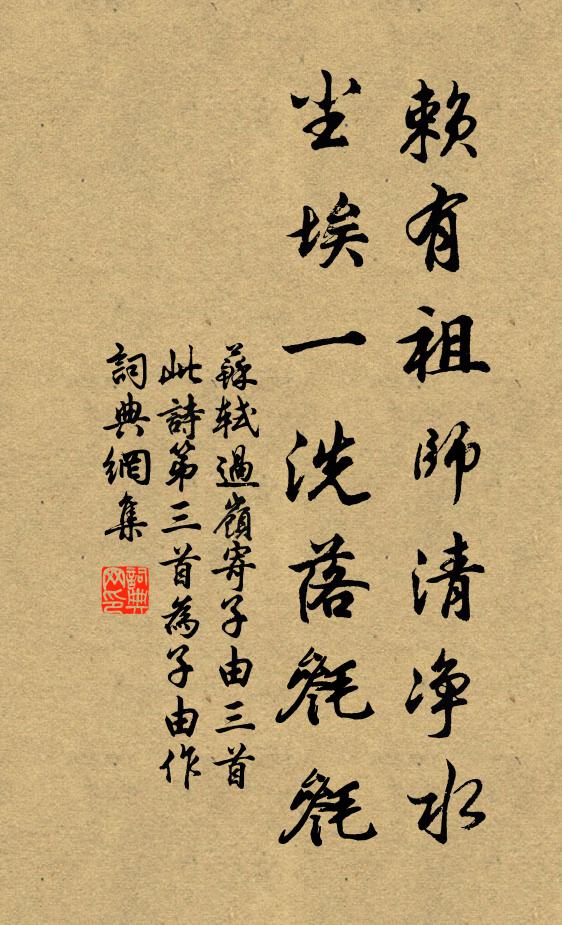 賴有祖師清净水
尘埃一洗落毿毿
蘇軾過嶺寄子由三首
此詩第三首為子由作
詞典網集
詞典网印